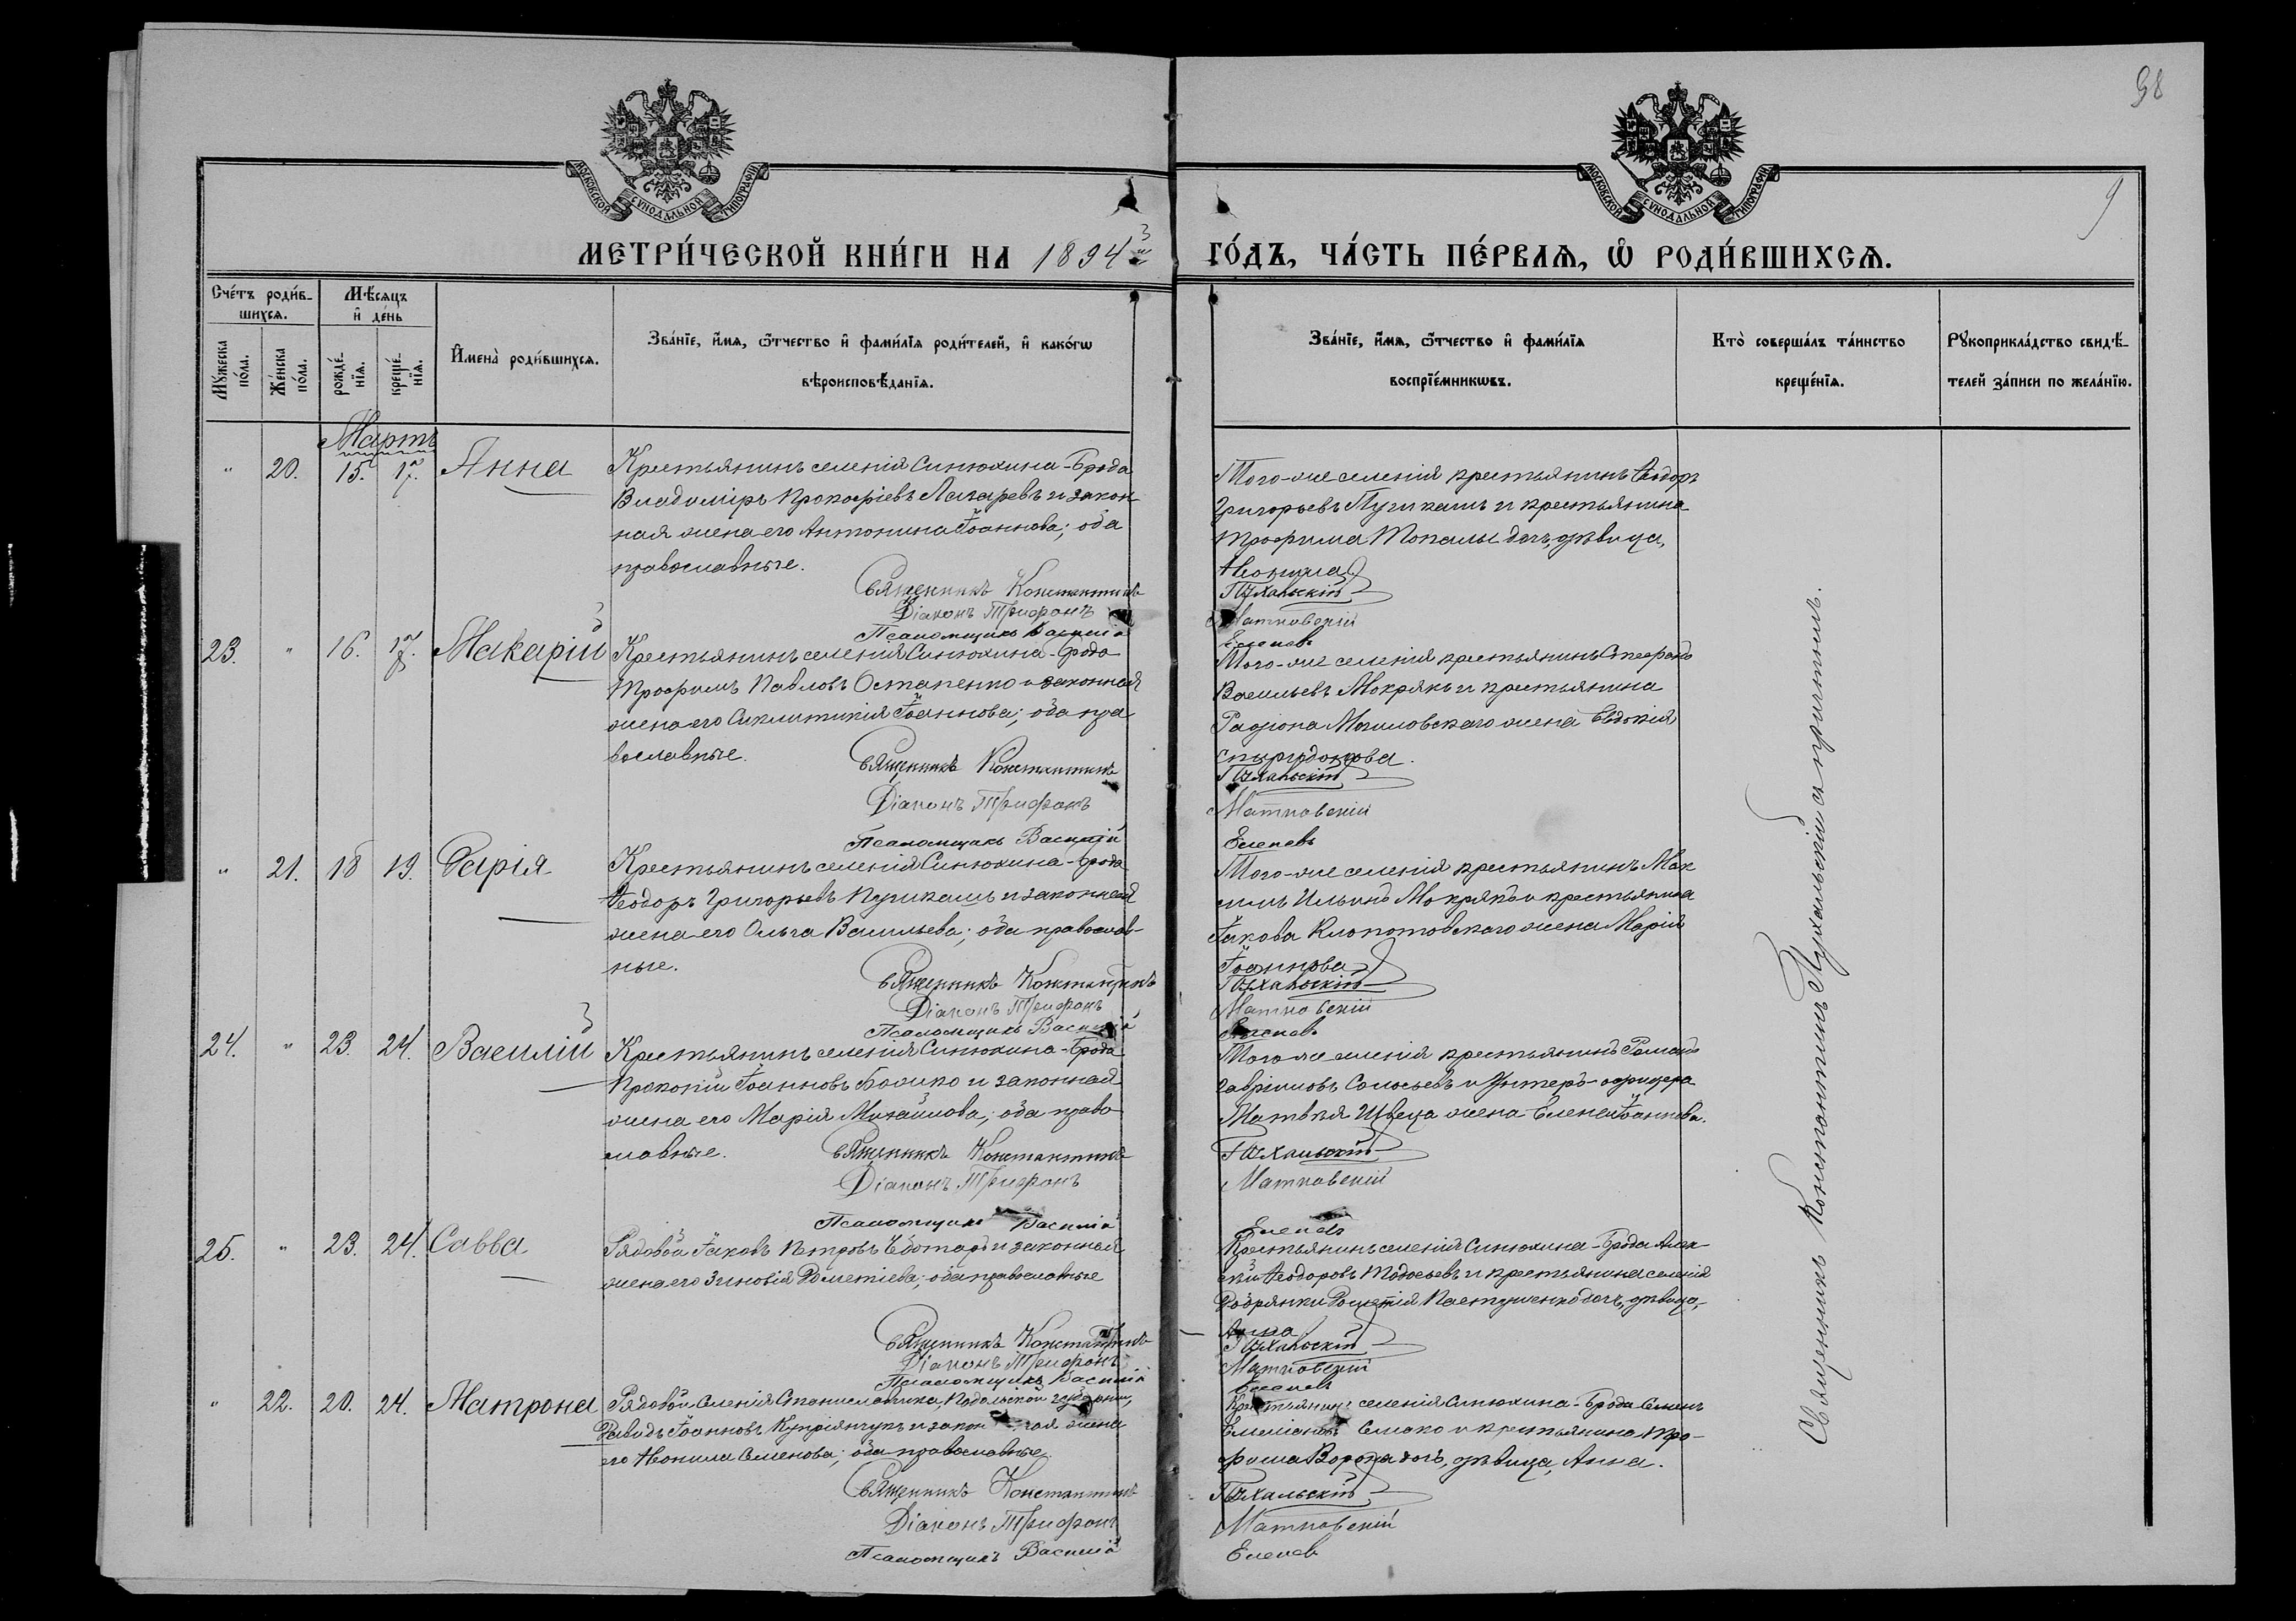 98
9
МОСКОВСКОЙ СУНОДАЛЬНОЙ ТИПОГРАФІИ
МОСКОВСКОЙ СУНОДАЛЬНОЙ ТИПОГРАФІИ
МЕТРИ́ЧЕСКОЙ КНИ́ГИ НА 1894й ГО́ДЪ, ЧА́СТЬ ПЕ́РВАѦ, Ѽ РОДИ́ВШИХСѦ.
Сче́тъ роди́в-
шихсѧ.
Мѣ́сѧцъ
и҆ де́нь
Мꙋ́жеска по́ла.
Же́нска по́ла.
рожде́-
нїѧ.
креще́-
нїѧ.
И҆мена̀ роди́вшихсѧ.
Зва́нїе, и҆́мѧ, ѻ҆́тчество и҆ фами́лїѧ роди́телей, и҆ како́гѡ
вѣроисповѣ́данїѧ.
Зва́нїе, и҆́мѧ, ѻ҆́тчество и҆ фами́лїѧ
воспрїе́мникѡвъ.
Кто̀ соверша́лъ та́инство
креще́нїѧ.
Рꙋкоприкла́дство свидѣ́-
телей за́писи по жела́нїю.
Мартъ
" 20. 15. 17. Анна
Крестьянинъ селенія Синюхина-Брода
Владиміръ Прокофіевъ Лагаревъ и закон
ная жена его Антонина Іоаннова; оба
православные.
Священникъ Константинъ
Діаконъ Трифонъ
Псаломщикъ Василій
Того-же селенія крестьянинъ Ѳеодоръ
Григорьевъ Пугикашъ и крестьянина
Трофима Топалы дочь, дѣвица,
Ѳеонила
Пухальскій
Матковскій
Еленевъ
23. " 16. 17. Макарій
Крестьянинъ селенія Синюхина-Брода
Трофимъ Павловъ Остапенко и законная
жена его Синклитикія Іоаннова; оба пра
вославные.
Священникъ Константинъ
Діаконъ Трифонъ
Псаломщикъ Василій
Того-же селенія крестьянинъ Стефанъ
Васильевъ Мокрякъ и крестьянина
Радіона Могиловскаго жена Евдокія
Спиридонова.
Пухальскій
Матковскій
Еленевъ
" 21. 18 19. Дарія
Крестьянинъ селенія Синюхина-Брода
Ѳеодоръ Григорьевъ Пугикашъ и законная
жена его Ольга Васильева; оба православ-
ные.
Священникъ Константинъ
Діаконъ Трифонъ
Псаломщикъ Василій
Того-же селенія крестьянинъ Мак
симъ Ильинъ Мокрякъ и крестьянина
Іакова Клопотовскаго жена Марія
Іоаннова
Пухальскій
Матковскій
Еленевъ
24. " 23. 24. Василій
Крестьянинъ селенія Синюхина-Брода
Прокопій Іоанновъ Божко и законная
жена его Марія Михайлова; оба право-
славные.
Священникъ Константинъ
Діаконъ Трифонъ
Псаломщикъ Василій
Того-же селенія крестьянинъ Романъ
Гавріиловъ Соловьевъ и Унтеръ-офицера
Матвѣя Швеца жена Елена Іоаннова.
Пухальскій
Матковскій
Еленевъ
25. " 23. 24. Савва
Рядовой Іаковъ Петровъ Чеботарь и законная
жена его Зиновія Дометіева; оба православные
Священникъ Константинъ
Діаконъ Трифонъ
Псаломщикъ Василій
Крестьянинъ селенія Синюхина-Брода Алек-
сѣй Ѳеодоровъ Тодосьевъ и крестьянина селенія
Добрянки Дометія Пастушенко дочь, дѣвица,
Анна
Пухальскій
Матковскій
Еленевъ
" 22. 20. 24. Матрона
Рядовой селенія Станиславчика, Подольской губерніи,
Давидъ Іоанновъ Купріянчукъ и законная жена
его Ѳеонила Семенова; оба православные.
Священникъ Константинъ
Діаконъ Трифонъ
Псаломщикъ Василій
Крестьянинъ селенія Синюхина-Брода Семенъ
Емеліановъ Семако и крестьянина Тро-
фима Ворона дочь, дѣвица, Анна.
Пухальскій
Матковскій
Еленев
Священникъ Константинъ Пухальскій съ причтомъ.